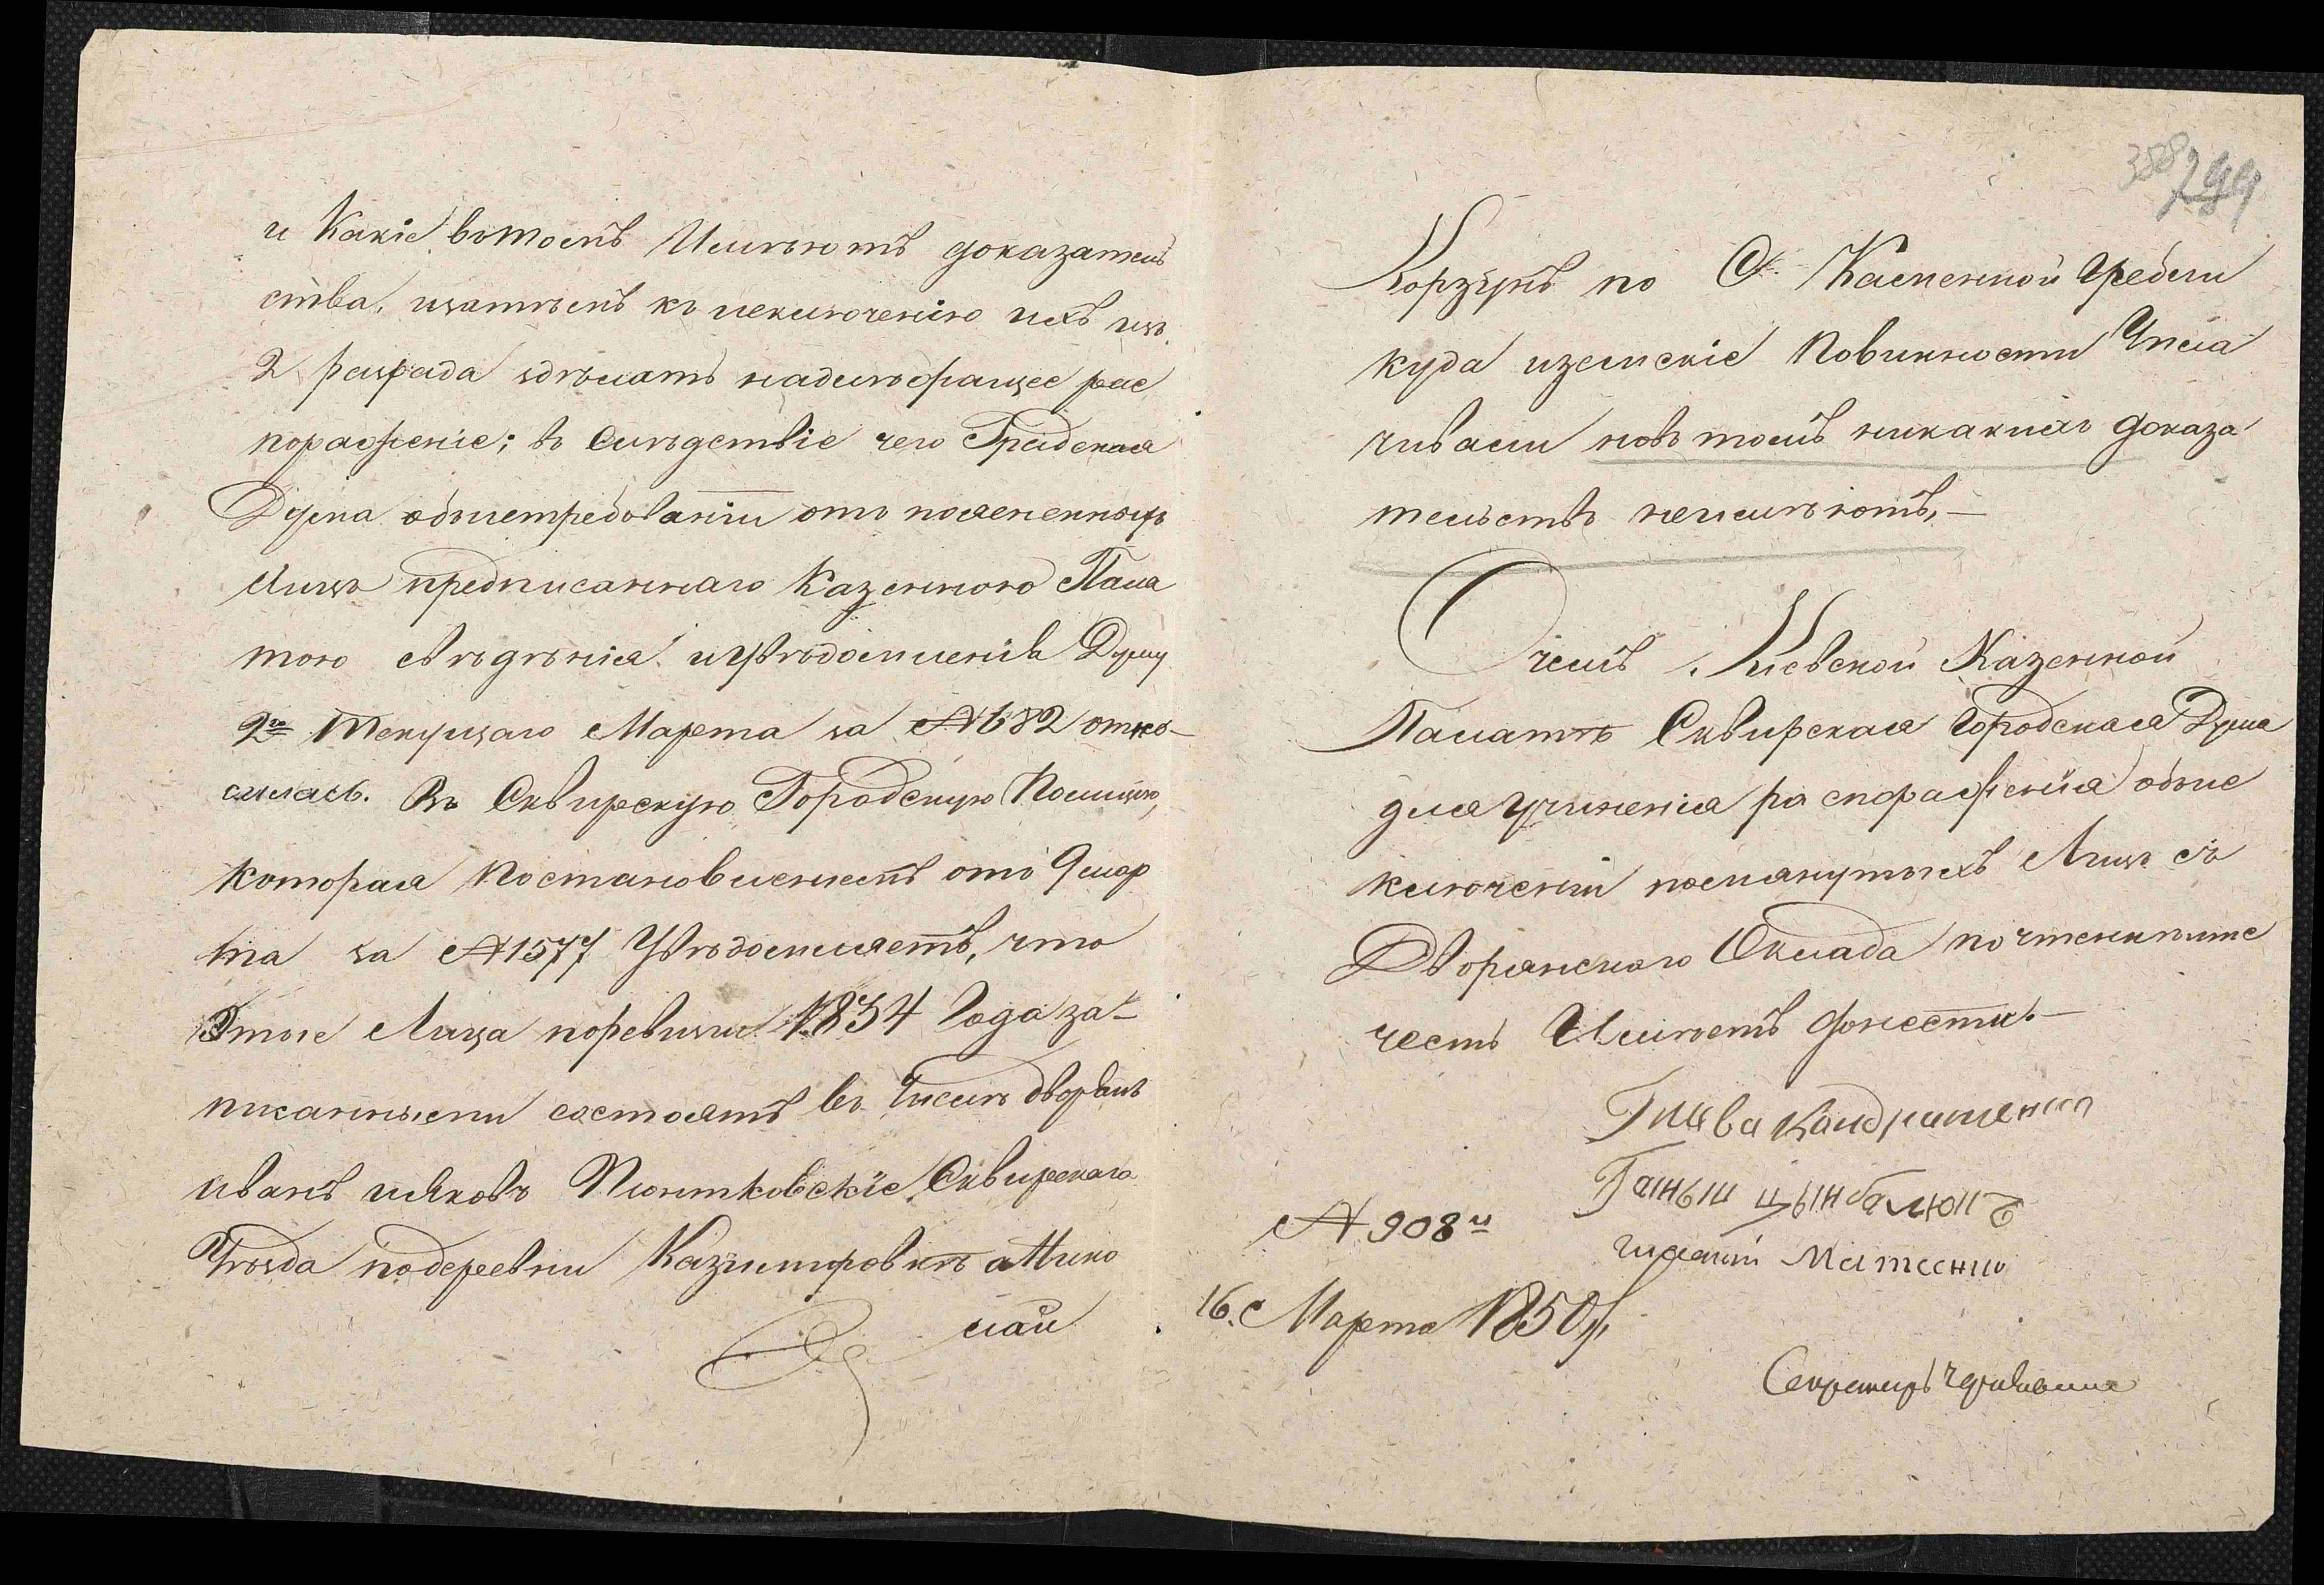 и Какіе вътомъ Имѣютъ доказатель
ства, изатѣмъ къ исключенію ихъ изъ
2 разряда здѣлать надлѣжащее рас
поряженіе; въ Слѣдствіе чего Градская
Дума обыстребованіи отъ поясненныхъ
Лицъ предписаннаго Казенною Пала
тою свѣдѣнія и Увѣдомленіи Думу
2го Текущаго Марта за №682 отно-
силась. Въ Сквирскую Городскую Полицію,
которая Постановленіемъ отъ 9 мар
та за №1577 Увѣдомляетъ, что
Этые Лица поревизіи 1834 Года за-
писанными состоятъ въ Числѣ дворянъ
иванъ ияковъ Піонтковскіе, Сквирскаго
Уѣзда подеревни Казимировкѣ аМихо
лай
388 299
Корзунъ по С. Каменной Гребли
куда иземскіе Повинности Упла
чивали новъ томъ никакихъ доказа
тельствъ неимѣютъ,—
Очемъ Кіевской Казенной
Палатѣ Сквирская Городская Дума
для Учиненія распоряженія объис
ключеніи помянутыхъ Лицъ съ
Дворянскаго Оклада почтеннѣйше
честь Имѣетъ донести.—
Глава Кондратенко
Гласный Матеенко
№ 908й
16. Марта 1850 г.
Секретарь